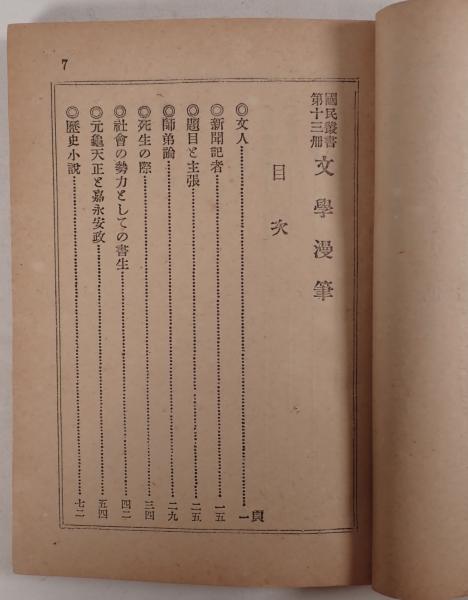 7
國民叢書
第十三册
文學漫筆
目次
頁
◎文人……一
◎新聞記者……一五
◎題目と主張……二五
◎師弟論……二九
◎死生の際……三四
◎社會の勢力としての書生……四二
◎元龜天正と嘉永安政……五四
◎歴史小説……七二